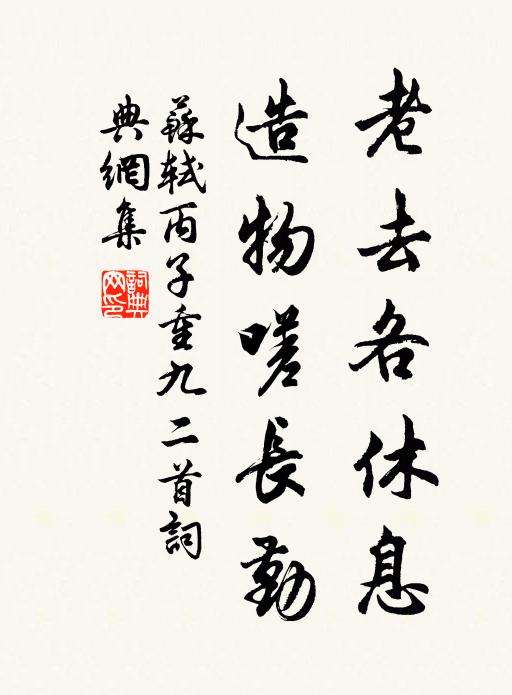 老去各休息
造物嗟長勤
蘇軾丙子重九二首詞
典網集
詞典網印